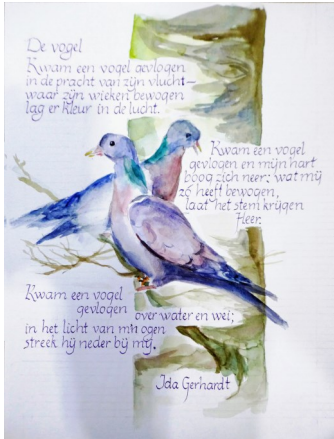 De vogel
Kwam een vogel gevlogen
in de pracht van zijn vlucht—
waar zijn wieken bewogen
lag er kleur in de lucht.
Kwam een vogel
gevlogen en mijn hart
boog zich neer; wat mij
zó heeft bewogen,
laat het stem krijgen
Heer.
Kwam een vogel
gevlogen over water en wei;
in het licht van mijn ogen
streek hij neder bij mij.
Ida Gerhardt